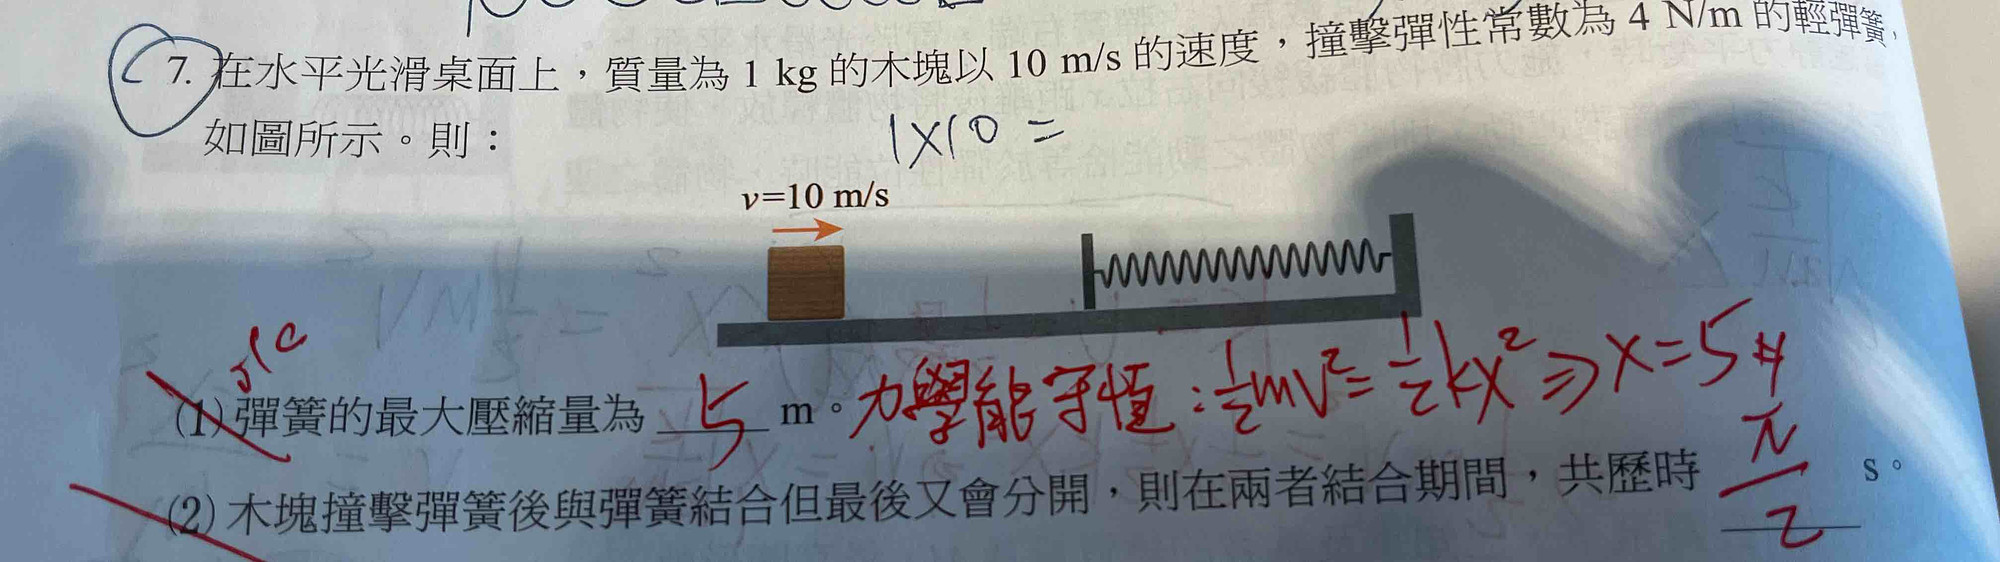 7. 在水平光滑桌面上，質量為 1 kg 的木塊以 10 m/s 的速度，撞擊彈性常數為 4 N/m 的輕彈簧，
如圖所示。則：
1×10 =
v=10 m/s
(1) 彈簧的最大壓縮量為 5 m。力學能守恆：½mv²=½kx² ⇒ x=5
(2) 木塊撞擊彈簧後與彈簧結合但最後又會分開，則在兩者結合期間，共歷時 π/2 s。